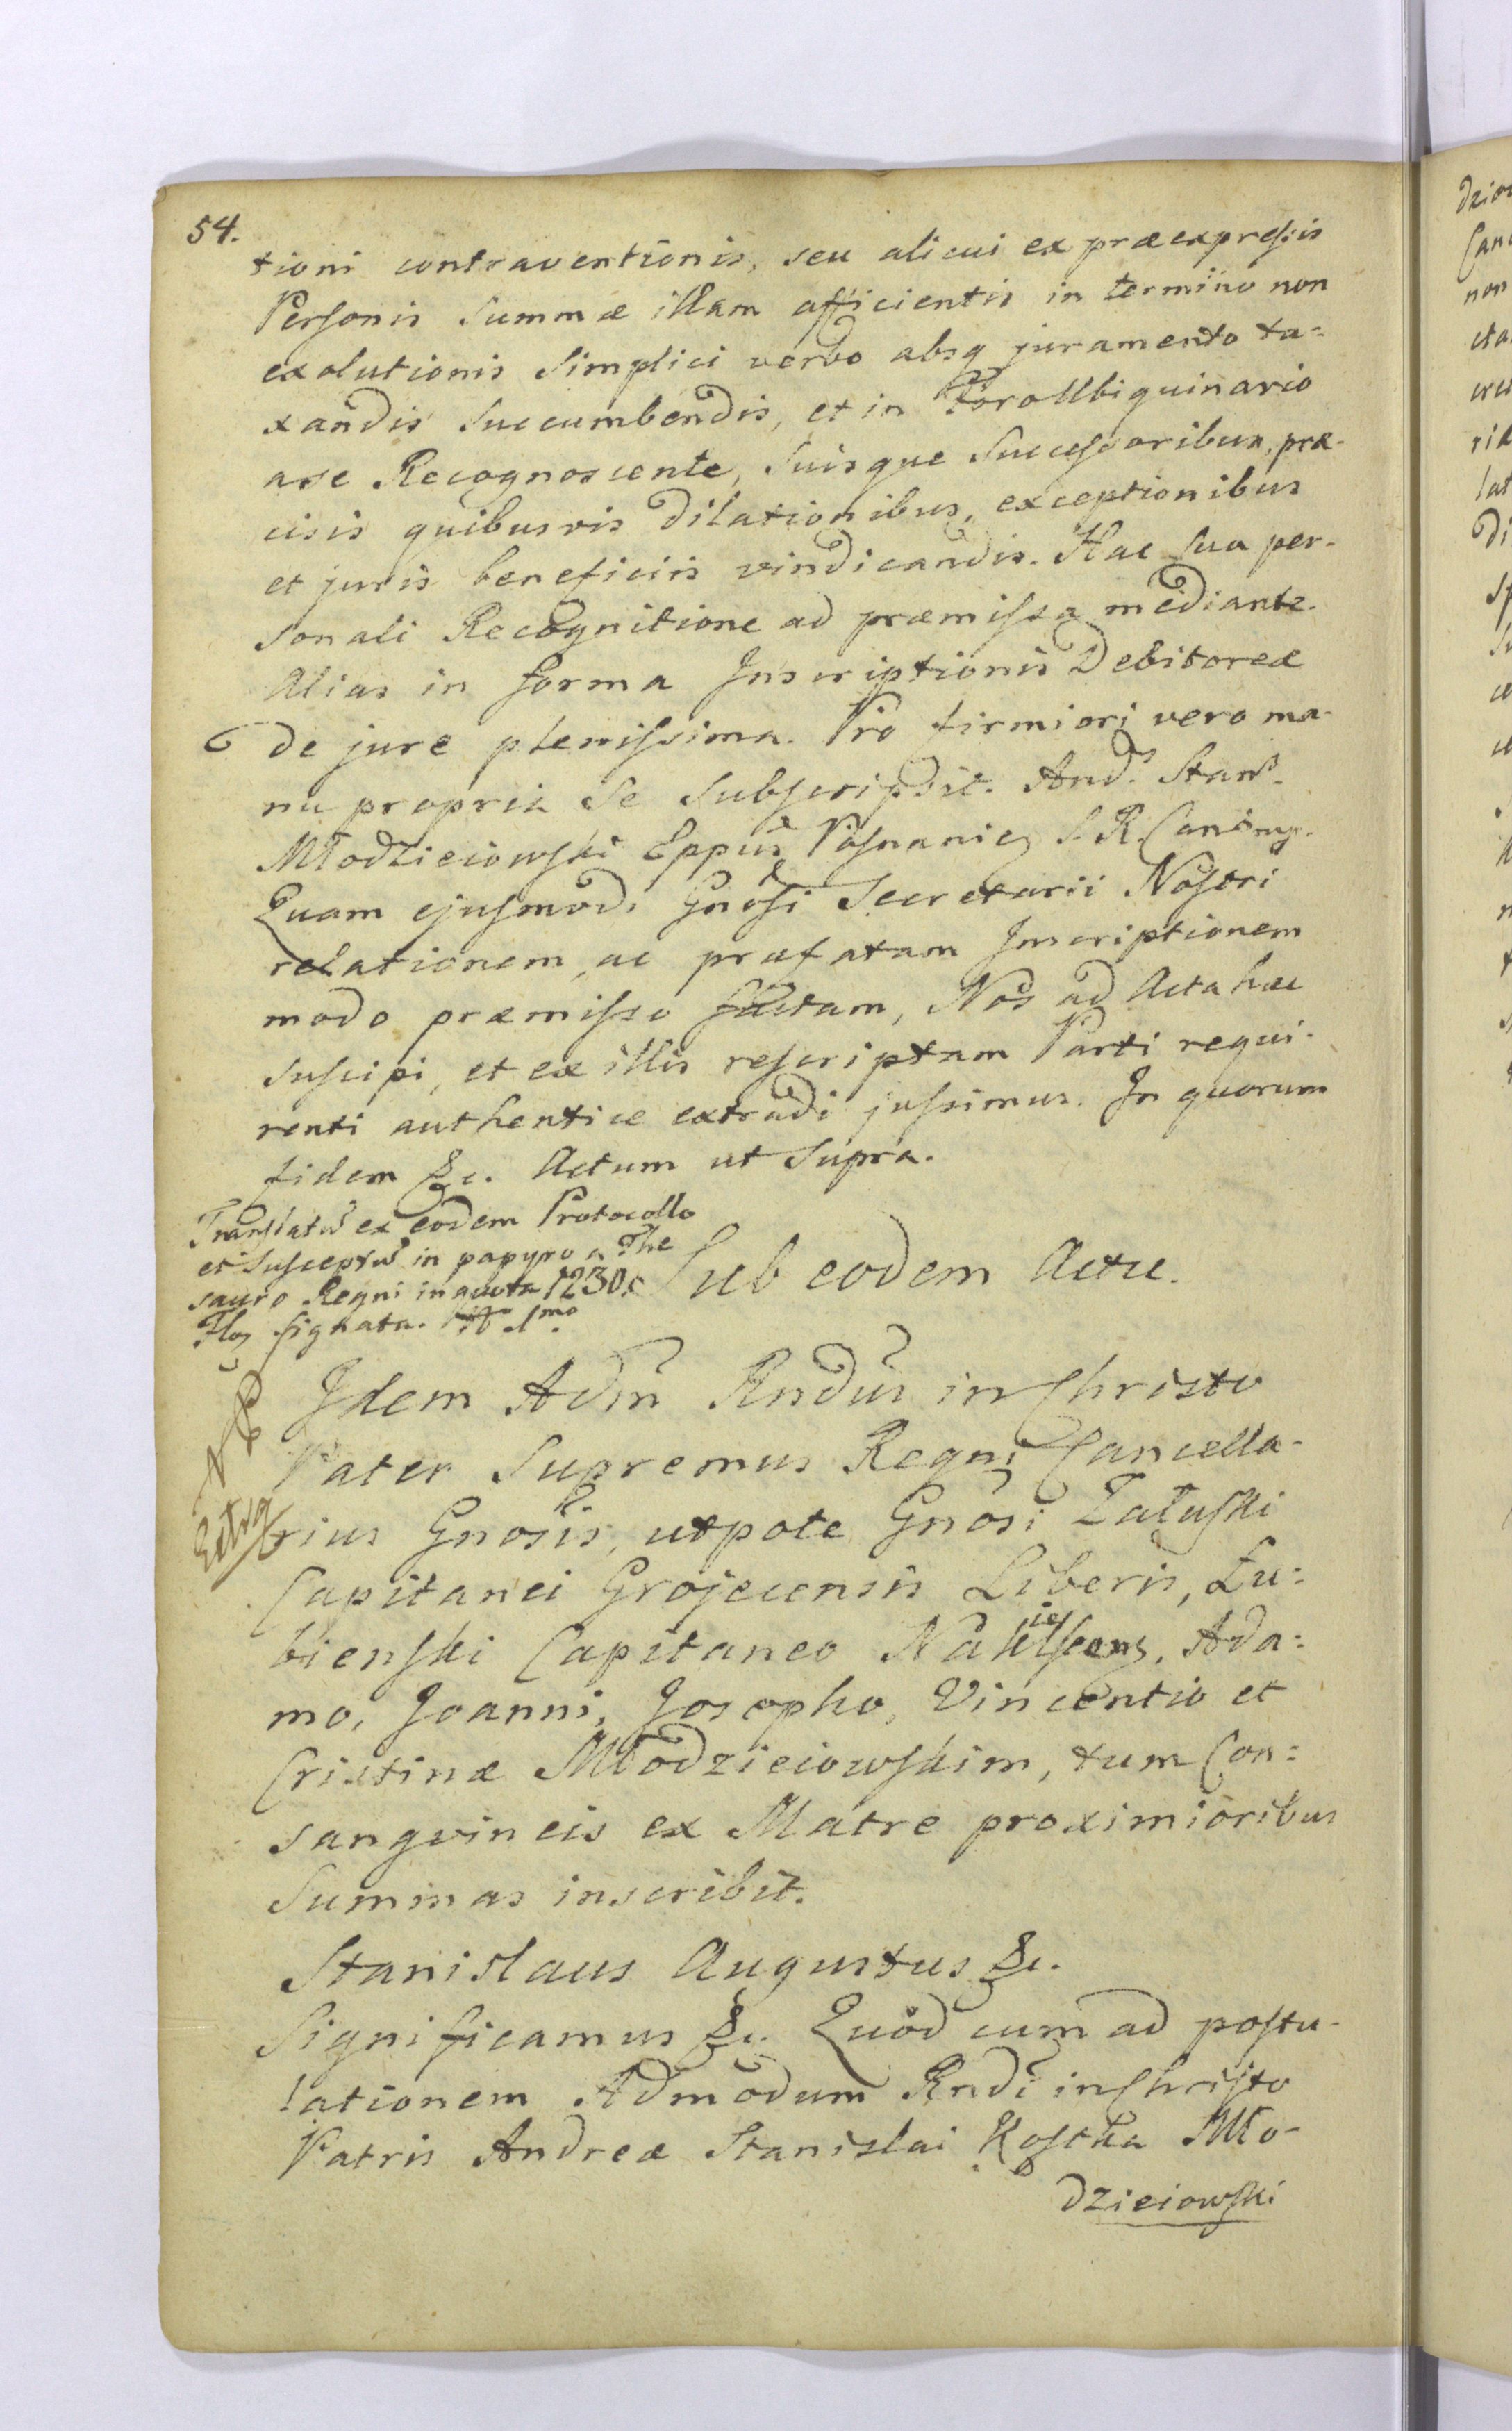 54.
tioni contraventionis, seu alicui ex præexpressis
Personis Summæ illam afficientis in termino non
exolutionis Simplici verbo absq juramento ta=
xandis Succumbendis, et in Foro Ubiquinario
a se Recognoscente, Suisque Successoribus, præ-
cisis quibusvis dilationibus, exceptionibus
et juris beneficiis vindicandis. Hac Sua per-
sonali Recognitione ad præmissa mediante.
Alias in forma Inscriptionis Debitoreæ
de jure plenissima. Pro firmiori vero ma-
nu propria Se Subscripsit. And.s Stan.s
Młodzieiowski Eppus Posnanien S. R.
Quam ejusmodi Gnosi Secretarii Nostri
relationem, ac præfatam Inscriptionem
modo præmisso factam, Nos ad Acta hæc
suscipi, et ex illis rescriptam Parti requi-
renti authentice extradi jussimus. In quorum
fidem &c. Actum ut Supra.
Translatu ex eodem Protocollo
et Susceptu in papyro a The
sauro Regni in quota 1230
Flos signata. N 1mo.
Sub eodem Actu.
NB
Extrg
Idem Adm Rndus in Christo
Pater Supremus Regni Cancella-
rius Gnosis, utpote Gnosi Załuski
Capitanei Grojecensis Liberis, Łu=
bienski Capitaneo Nakielscens, Ada=
mo, Joanni, Josepho, Vincentio et
Cristinæ Młodzieiowskim, tum Con=
sangvineis ex Matre proximioribus
Summas inscribit.
Stanislaus Augustus &c.
Significamus &c. Quod cum ad postu-
lationem Admodum Rndi in Christo
Patris Andreæ Stanislai Kostka Mło-
dzieiowski